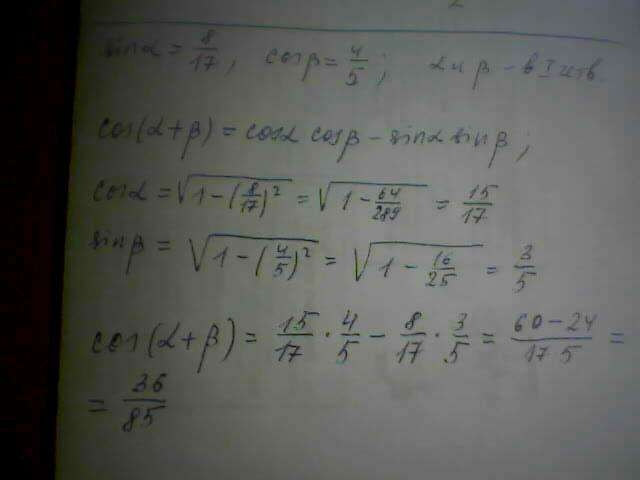 sinα = 8/17, cosβ = 4/5; α и β - в I четв.
cos(α+β) = cosα cosβ - sinα sinβ;
cosα = √(1-(8/17)²) = √(1-64/289) = 15/17
sinβ = √(1-(4/5)²) = √(1-16/25) = 3/5
cos(α+β) = 15/17 · 4/5 - 8/17 · 3/5 = (60-24)/(17 5) =
= 36/85